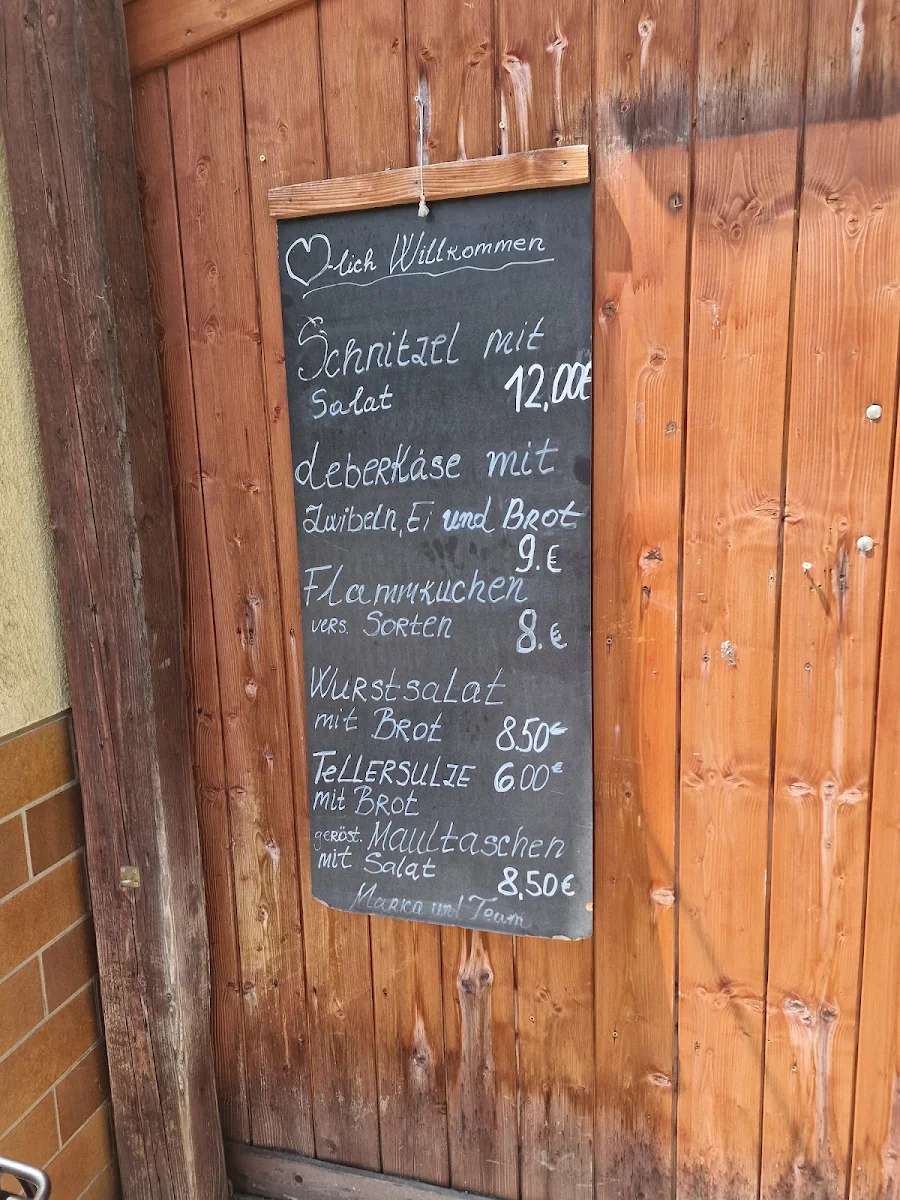 ♡-lich Willkommen
Schnitzel mit
Salat 12,00€
Leberkäse mit
Zwibeln, Ei und Brot
9.€
Flammkuchen
vers. Sorten 8.€
Wurstsalat
mit Brot 8.50€
TELLERSULZE 6.00€
mit Brot
geröst. Maultaschen
mit Salat
8,50€
und Team